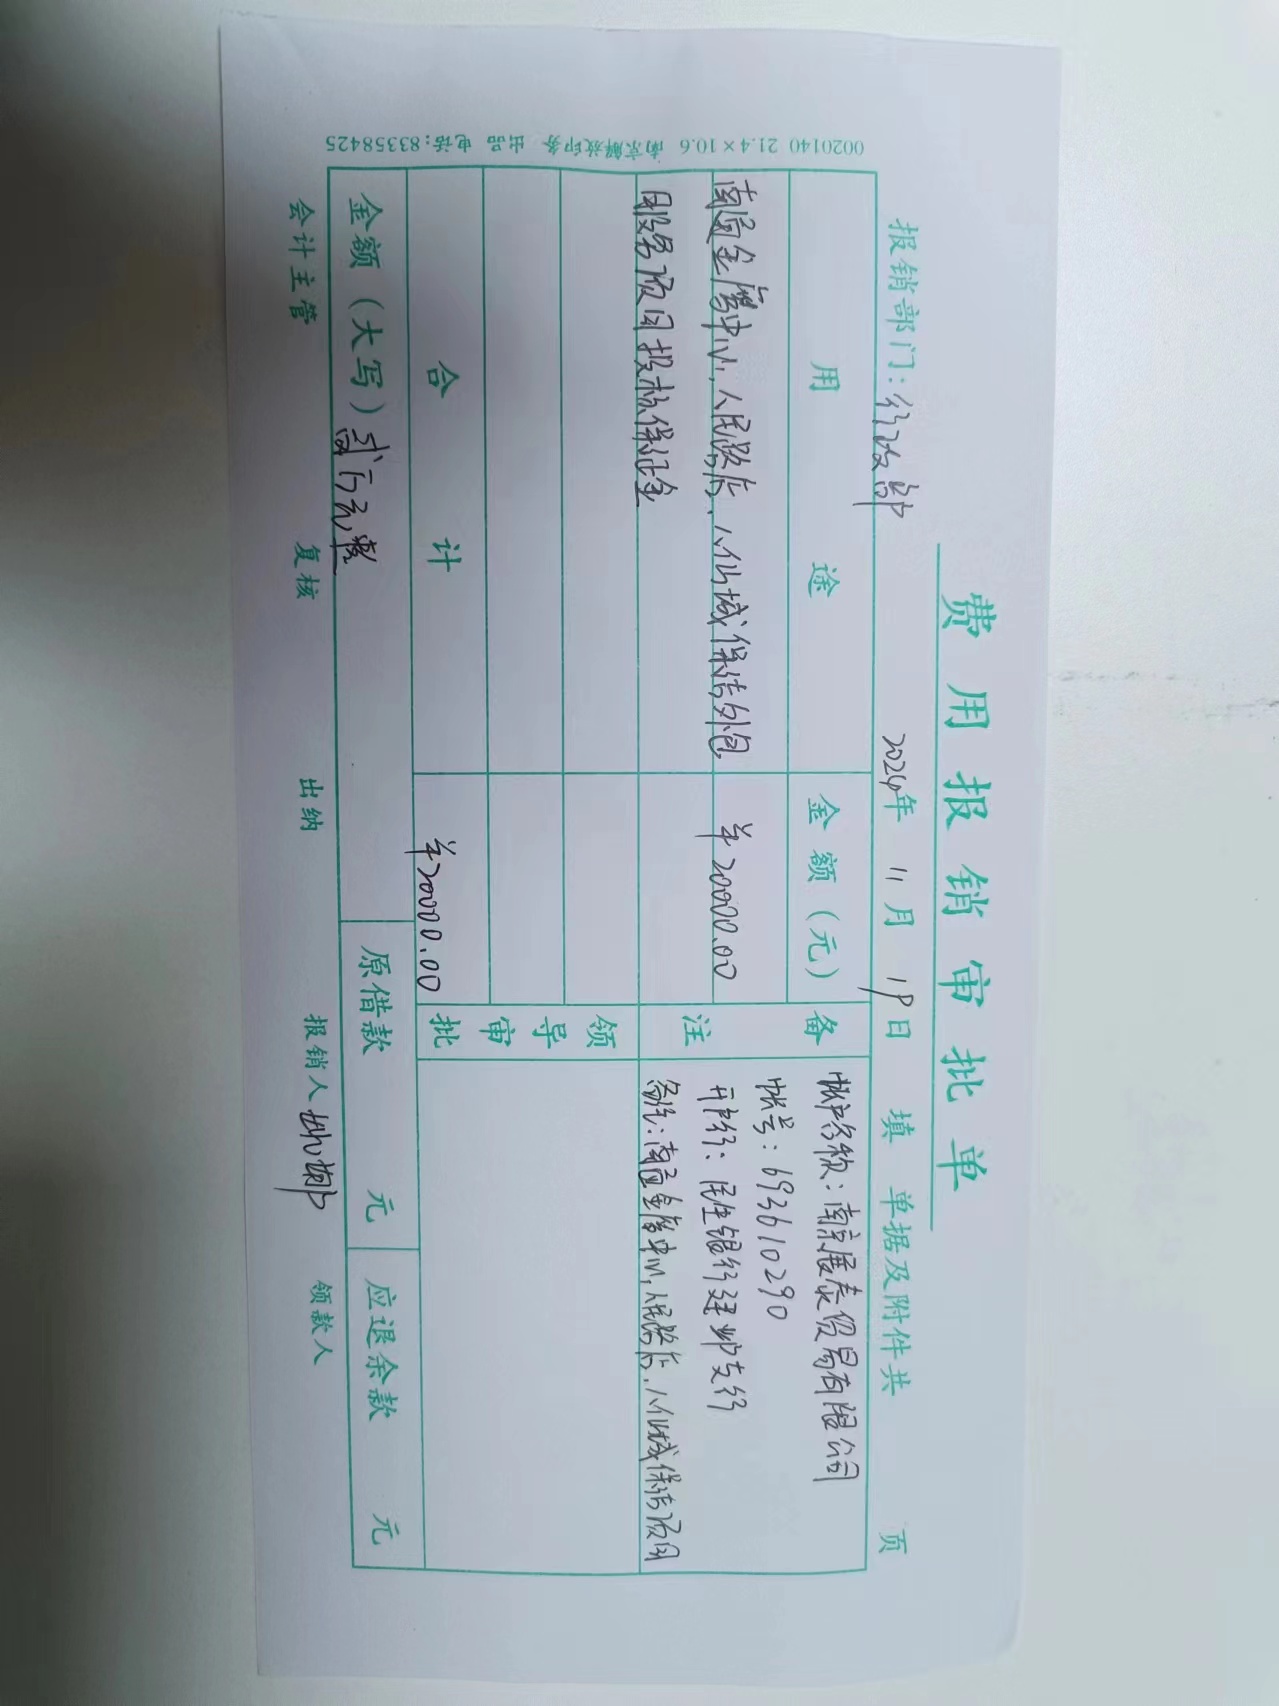 费用报销审批单
报销部门：行政部 2024年 11月 19日 填 单据及附件共 页
用途 金额（元） 备注
南通金鹰中心、人民路店、八仙城保洁外包 ￥20000.00
服务项目投标保证金
帐户名称：南京展泰贸易有限公司
帐号：693610290
开户行：民生银行建邺支行
备注：南通金鹰中心、人民路店、八仙城保洁项目
领导审批
合计 ￥20000.00
金额（大写）贰万元整 原借款 元 应退余款 元
会计主管 复核 出纳 报销人 领款人
0020140 21.4×10.6 南京解放印务 出品 电话：83358425